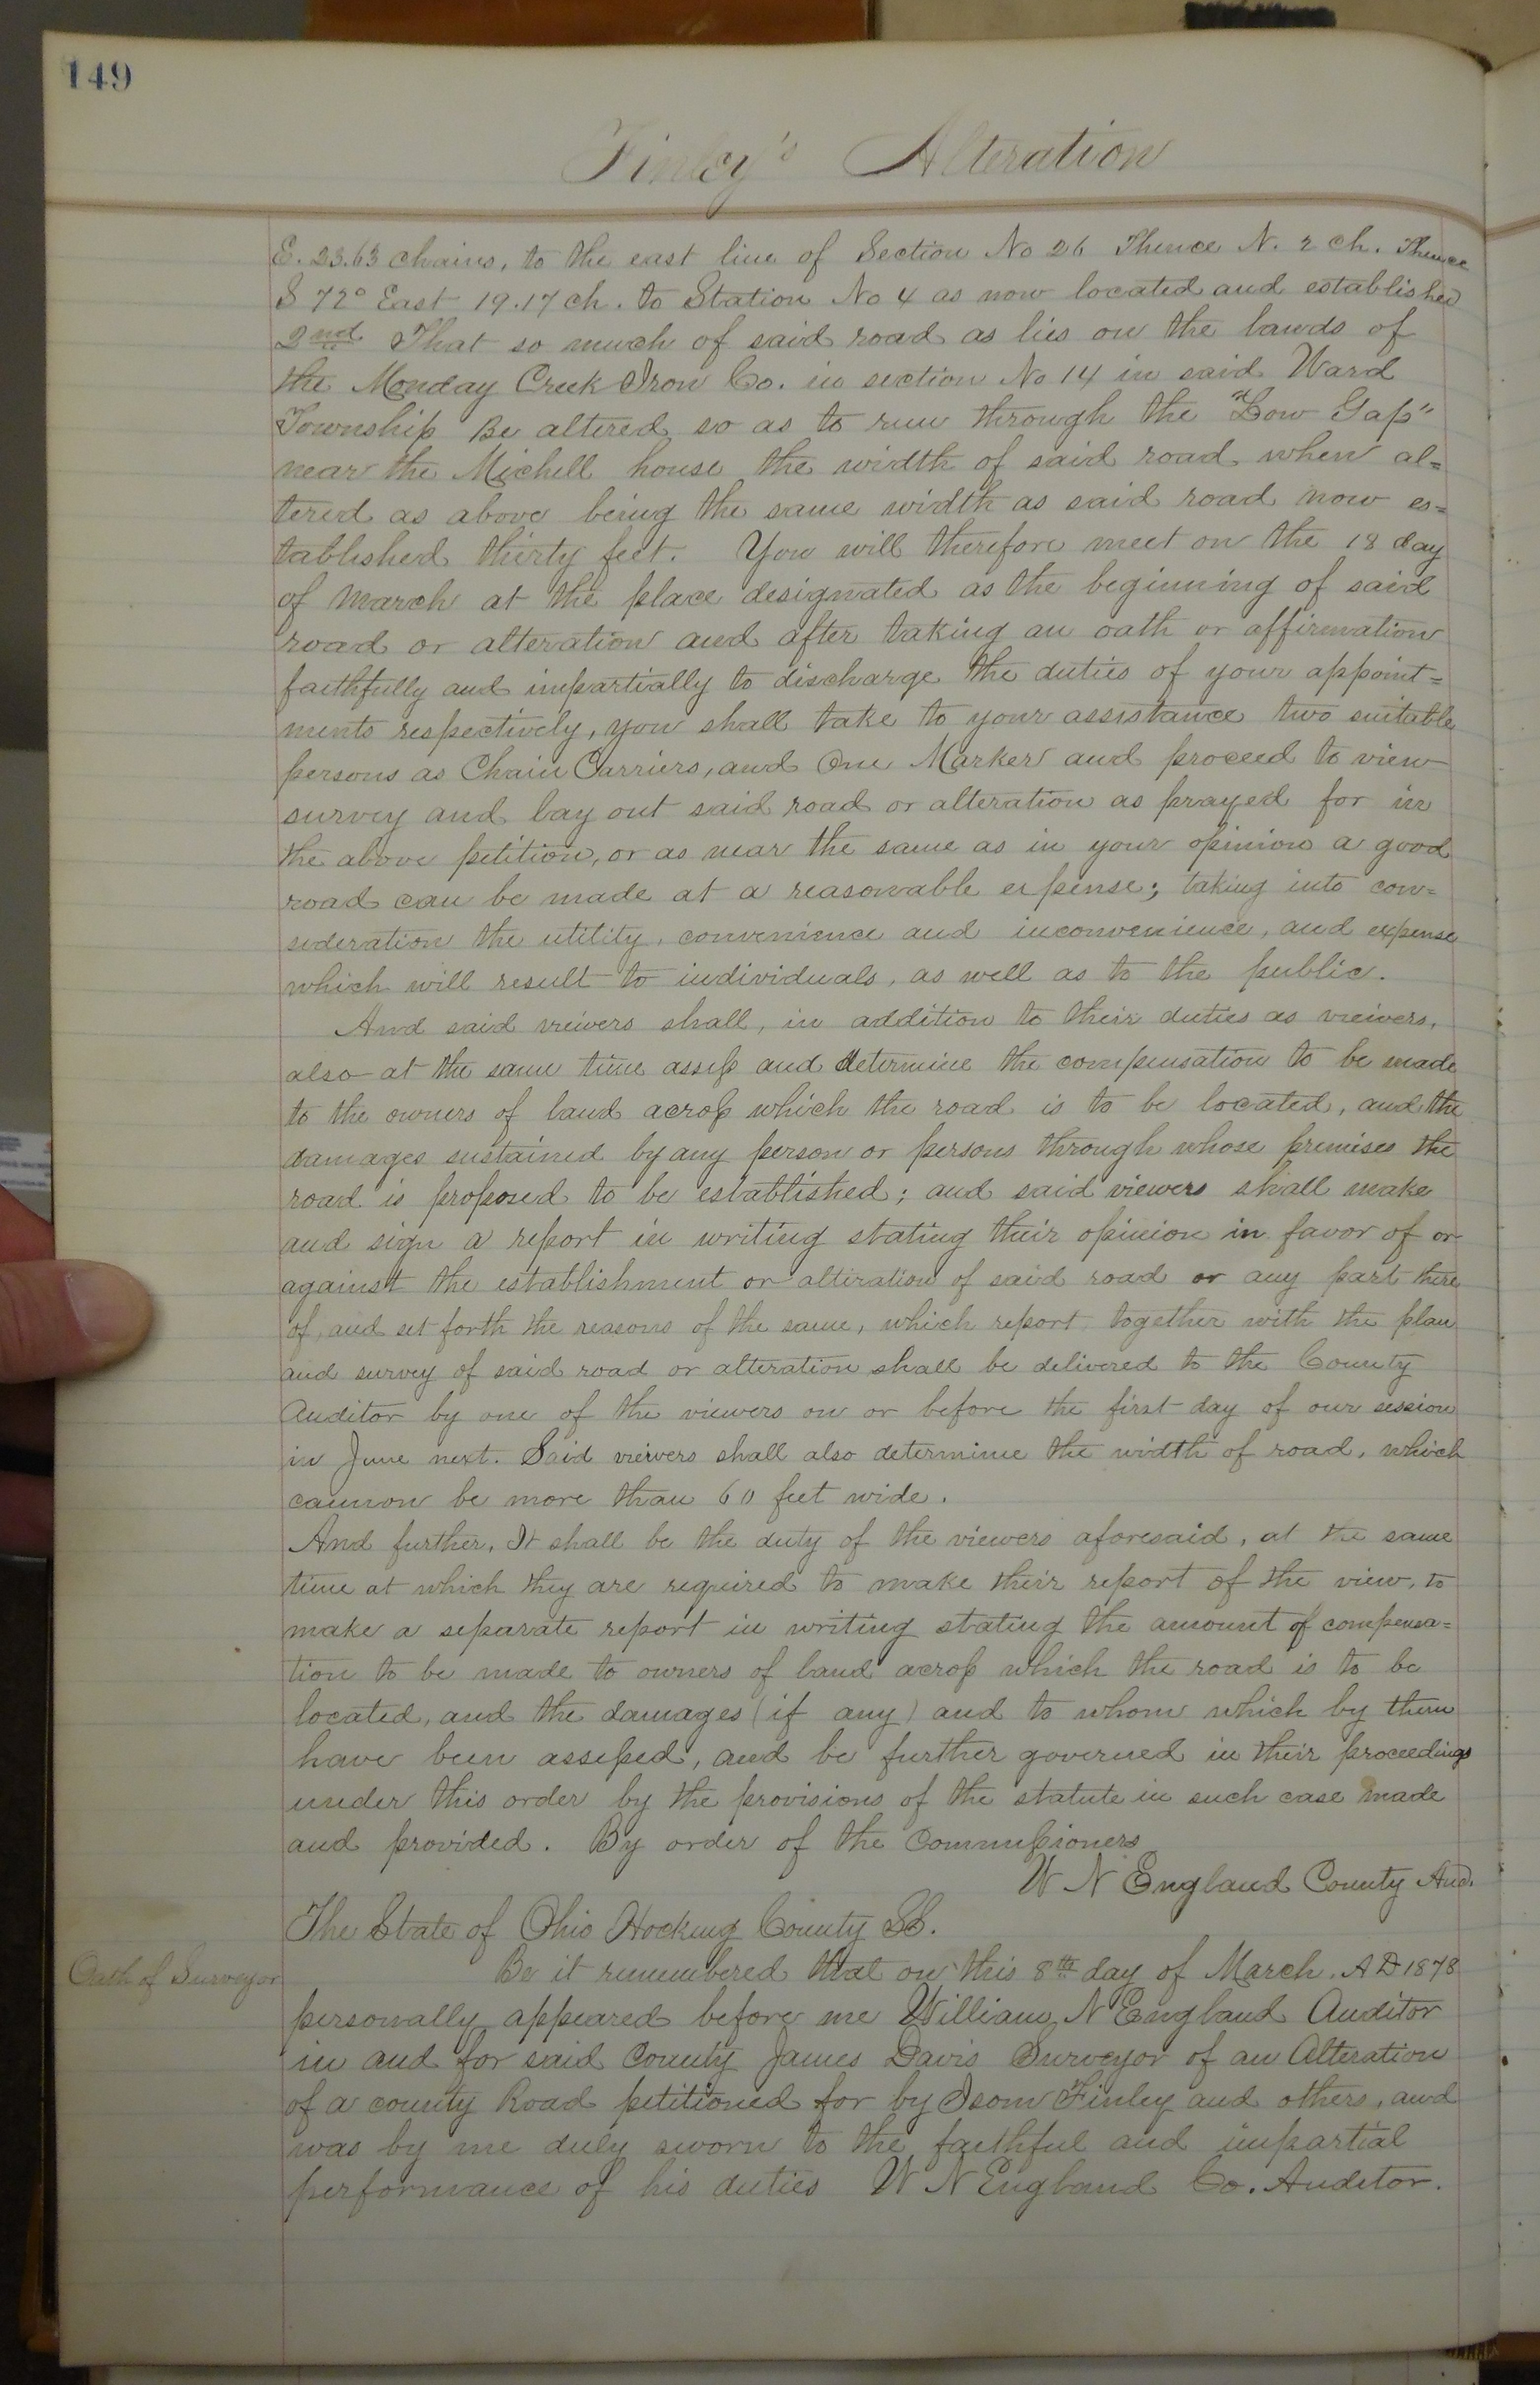 149
Finley's Alteration
E. 23.63 chains, to the east line of Section No 26 Thence N. 2 ch. Thence
S 72° East 19.17 ch. to Station No 4 as now located and established
2nd That so much of said road as lies on the lands of
the Monday Creek Iron Co. in section No 14 in said Ward
Township Be altered so as to run through the "Low Gap"
near the Michell house the width of said road when al=
tered as above being the same width as said road now es=
tablished thirty feet. You will therefore meet on the 18 day
of March at the place designated as the beginning of said
road or alteration and after taking an oath or affirmation
faithfully and impartially to discharge the duties of your appoint=
ments respectively, you shall take to your assistance two suitable
persons as Chain Carriers, and One Marker and proceed to view
survey and lay out said road or alteration as prayed for in
the above petition, or as near the same as in your opinion a good
road can be made at a reasonable expense; taking into con=
sideration the utility, convenience and inconvenience, and expense
which will result to individuals, as well as to the public.
And said viewers shall, in addition to their duties as viewers,
also at the same time assess and determine the compensation to be made
to the owners of land across which the road is to be located, and the
damages sustained by any person or persons through whose premises the
road is proposed to be established; and said viewers shall make
and sign a report in writing stating their opinion in favor of or
against the establishment or alteration of said road or any part there
of, and set forth the reasons of the same, which report together with the plan
and survey of said road or alteration shall be delivered to the County
Auditor by one of the viewers on or before the first day of our session
in June next. Said viewers shall also determine the width of road, which
cannon be more than 60 feet wide.
And further, It shall be the duty of the viewers aforesaid, at the same
time at which they are required to make their report of the view, to
make a separate report in writing stating the amount of compensa=
tion to be made to owners of land across which the road is to be
located, and the damages (if any) and to whom which by them
have been assessed, and be further governed in their proceedings
under this order by the provisions of the statute in such case made
and provided. By order of the Commissioners
W N England County Aud.
The State of Ohio Hocking County SS.
Oath of Surveyor
Be it remembered that on this 8th day of March, A D 1878
personally appeared before me William N England Auditor
in and for said County James Davis Surveyor of an Alteration
of a county Road petitioned for by Isom Finley and others, and
was by me duly sworn to the faithful and impartial
performance of his duties W N England Co. Auditor.